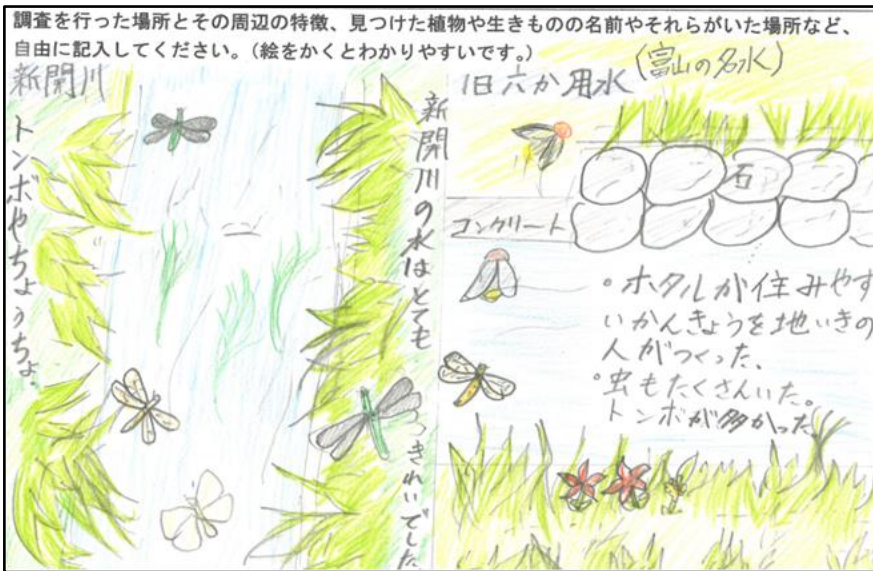 調査を行った場所とその周辺の特徴、見つけた植物や生きものの名前やそれらがいた場所など、
自由に記入してください。（絵をかくとわかりやすいです。）
新開川
トンボやちょうちょ。
新開川の水はとても
きれいでした
旧六か用水
(富山の名水)
石
コンクリート
。ホタルが住みやす
いかんきょうを地いきの
人がつくった。
。虫もたくさんいた。
トンボが多かった。